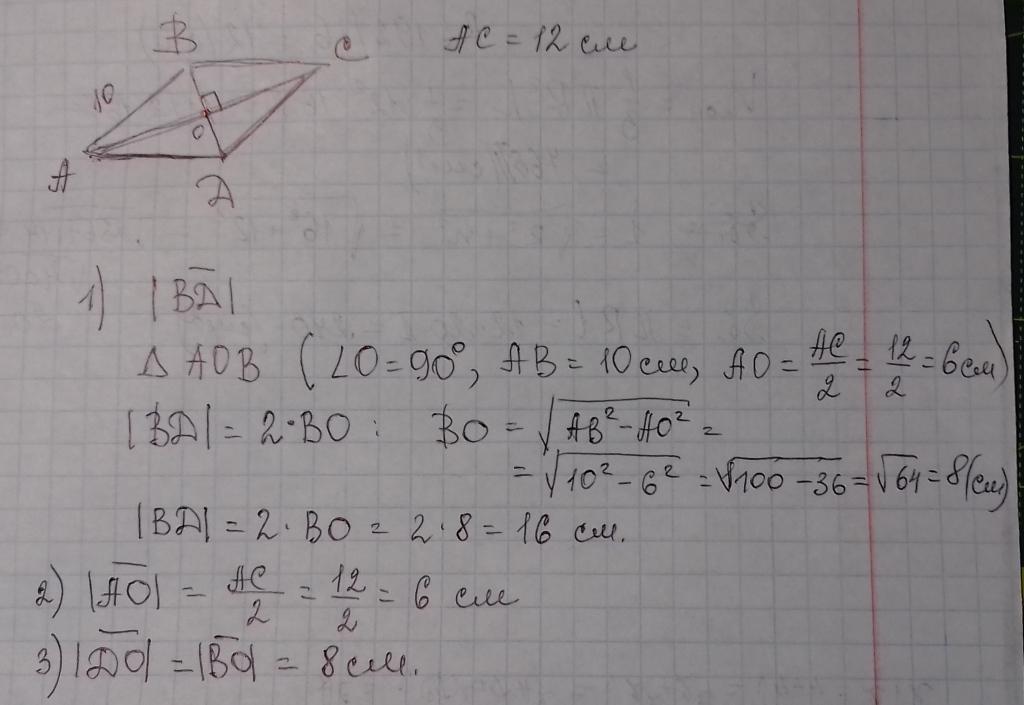 B
C
AC = 12 см
10
O
A
D
1) |BD̅|
Δ AOB (∠O = 90°, AB = 10 см, AO = AC/2 = 12/2 = 6 см)
|BD| = 2·BO : BO = √(AB² - AO²) =
= √(10² - 6²) = √(100 - 36) = √64 = 8 (см)
|BD| = 2 · BO = 2 · 8 = 16 см.
2) |A̅O̅| = AC/2 = 12/2 = 6 см
3) |D̅O̅| = |B̅O̅| = 8 см.